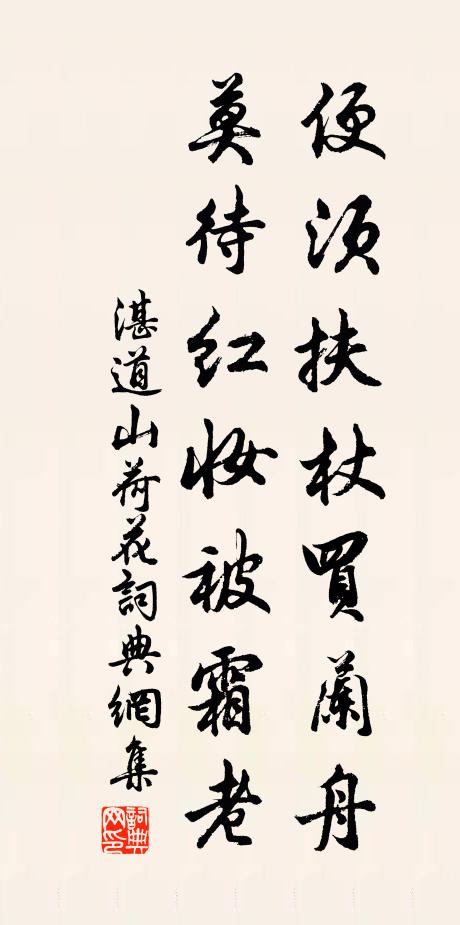 便須扶杖買蘭舟
莫待紅妝被霜老
湛道山荷花詞典網集
詞典網印